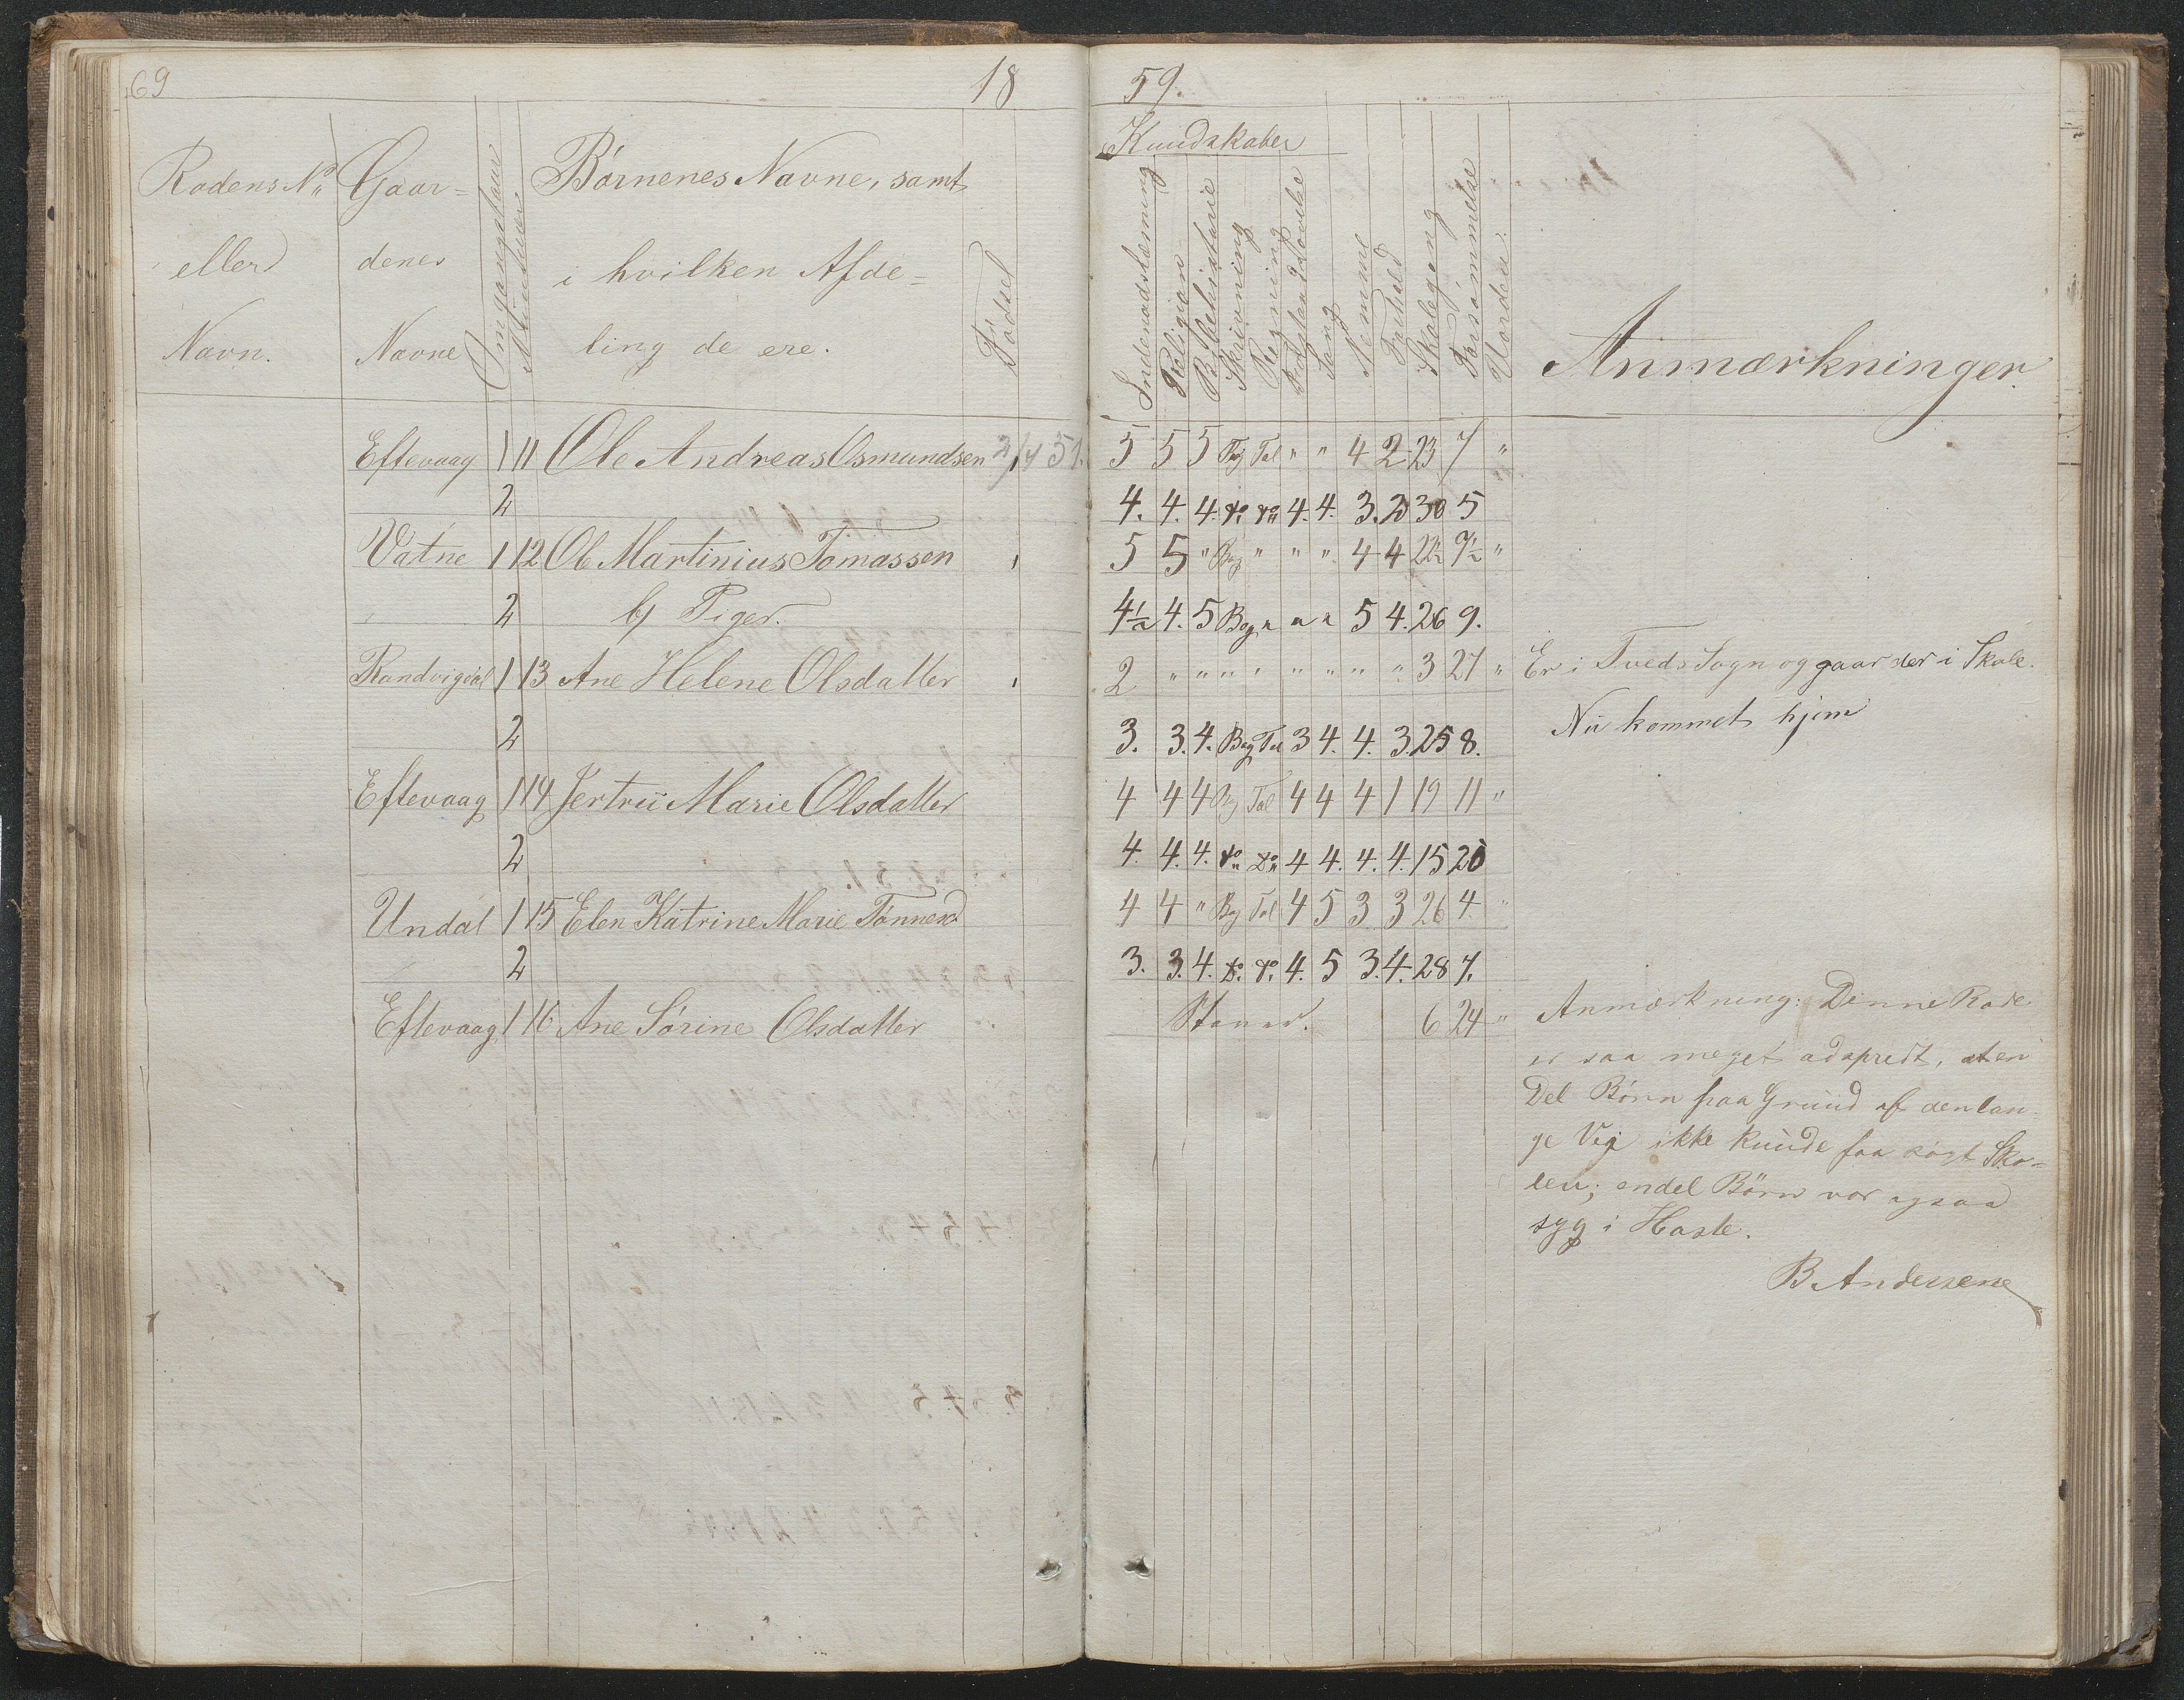 69 18 59.
Kundskaber
Rodens No Gaar= Omgangstaur Børnenes Navne, samt
eller denes i hvilken Afde=
Navn. Navne ling de ere. Fødsel
Indenadslæsning Religion Bibelhistorie Skrivning Regning Sang Nemme Forhold Skolegang Forsømmelse Anmærkninger
Eftevaag 1 11 Ole Andreas Osmundsen 2/4 51. 5 5 5 Bog Tal " " 4 2 23 7 "
2 4. 4. 4. do do 4. 4. 3. 2 30 5
Vatne 1 12 Ole Martinius Tomassen 5 5 " Bog " " " 4 4 22½ 7½ "
2 b) Piger. 4½ 4. 5 Bog " " " 5 4. 26 9.
Randvigdal 1 13 Ane Helene Olsdatter 2 " " " " " " " " 3 27 " Er i Tveds Sogn og gaar der i Skole.
2 3. 3. 4. Bog Tal 3 4. 4. 3 25 8. Nu kommet hjem
Eftevaag 1 14 Jertru Marie Olsdatter 4 4 4 Bog Tal 4 4 4 1 19 11 "
2 4. 4. 4. do do 4 4. 4. 4. 15 20
Undal 1 15 Elen Katrine Marie Tønnesd 4 4 " Bog Tal 4 5 3 3 26 4. "
2 3. 3. 4. do do 4. 5 3. 4. 28 7.
Eftevaag 1 16 Ane Sørine Olsdatter Staver. 6 24 " Anmærkning: Denne Rode
er saa meget adspredt, at en
Del Børn paa Grund af den lan-
ge Vei ikke kunde faa søgt Sko=
len; endel Børn var ogsaa
syg i Hoste.
B. Andersene